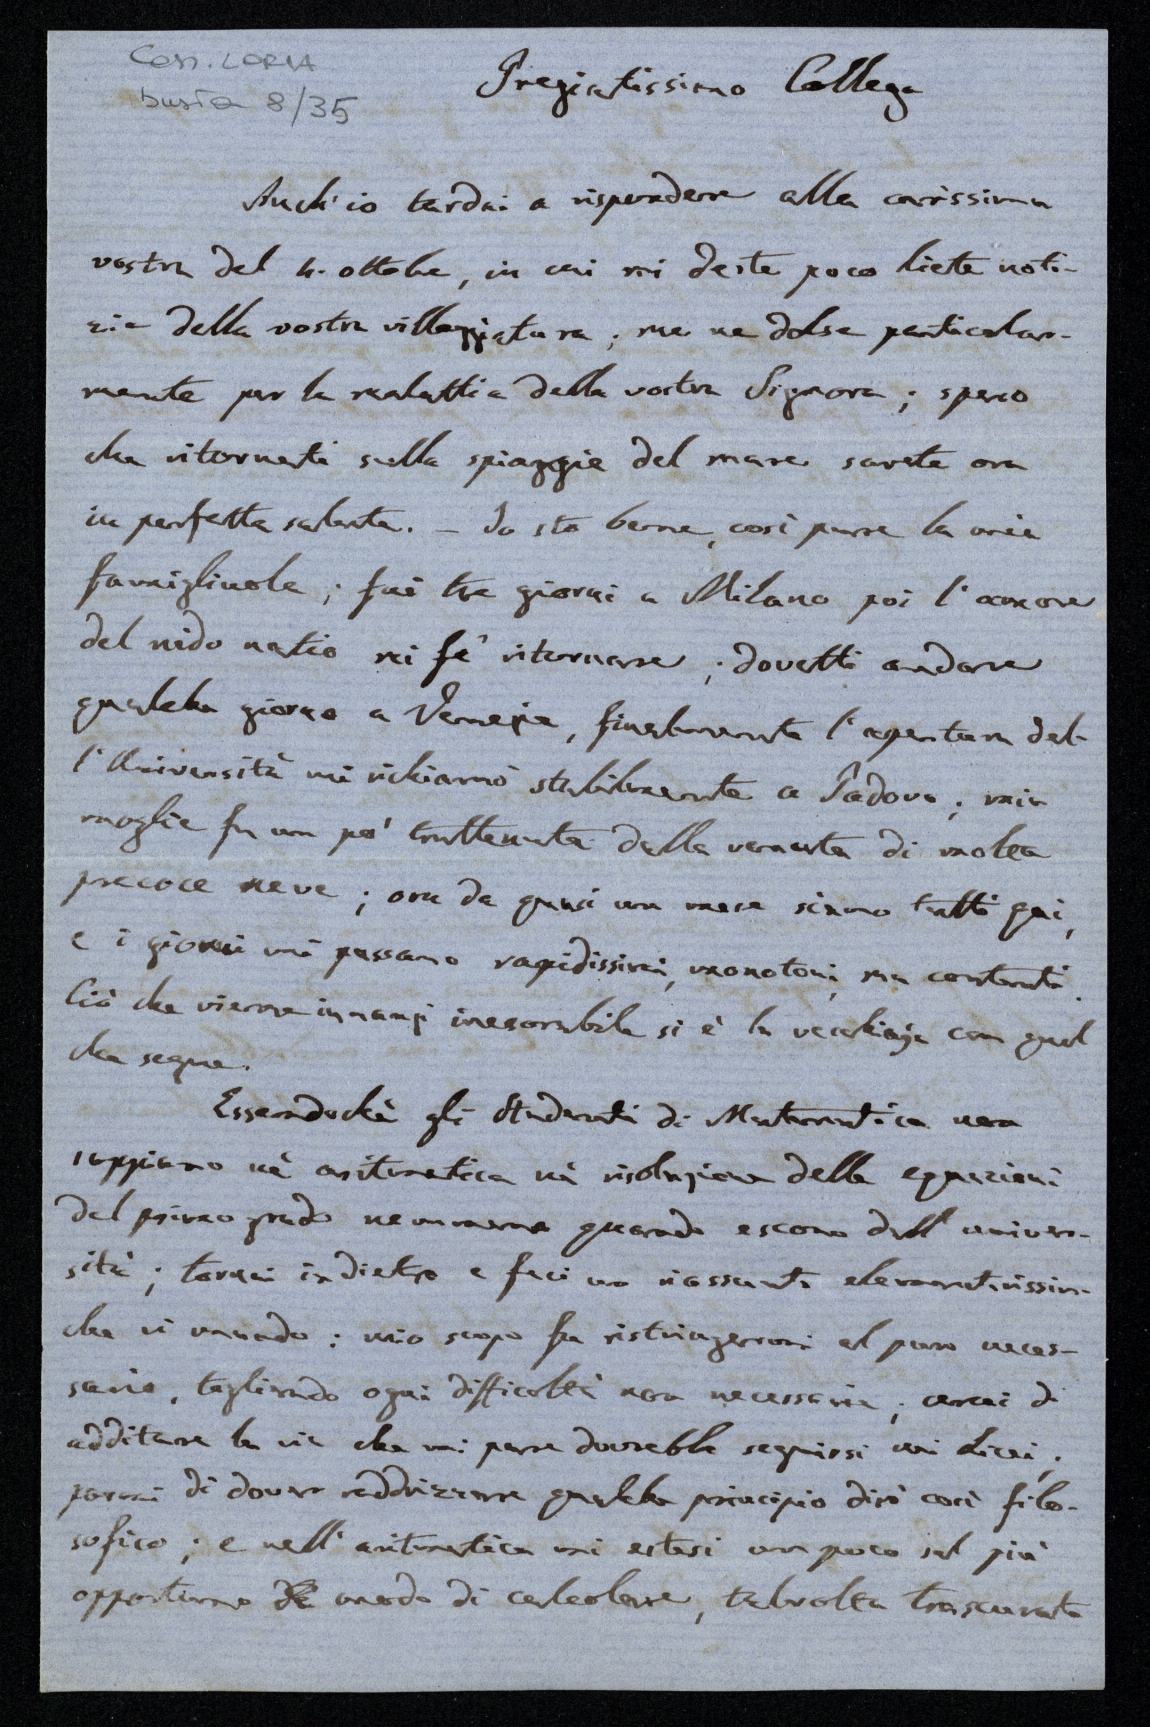 Cass. LORIA
busta 8/35
Pregiatissimo Collega
Anch'io tardai a rispondere alla carissima
vostra del 4. ottobre, in cui mi deste poco liete noti-
zie della vostra villeggiatura; me ne dolse particolar-
mente per la malattia della vostra Signora; spero
che ritornati sulle spiaggie del mare sarete ora
in perfetta salute. – Io sto bene, così pure la mia
famigliuola; fui tre giorni a Milano poi l'amore
del nido natio mi fe' ritornare; dovetti andare
qualche giorno a Venezia, finalmente l'apertura del-
l'Università mi richiamò stabilmente a Padova; mia
moglie fu un po' trattenuta dalla venuta di molta
precoce neve; ora da quasi un mese siamo tutti qui,
e i giorni mi passano rapidissimi, monotoni, ma contenti.
Ciò che viene innanzi inesorabile si è la vecchiaja con quel
che segue.
Essendochè gli Studenti di Matematica non
sappiano nè aritmetica nè risoluzione delle equazioni
del primo grado nemmeno quando escono dall'univer-
sità; tornai indietro e feci un riassunto elementarissimo
che vi mando: mio scopo fu ristringermi al puro neces-
sario, togliendo ogni difficoltà non necessaria; cercai di
additare la via che mi pare dovrebbe seguirsi nei Licei;
parmi di dover raddrizzare qualche principio dirò così filo-
sofico; e nell'aritmetica mi estesi un poco sul più
opportuno modo di calcolare, talvolta trascurato